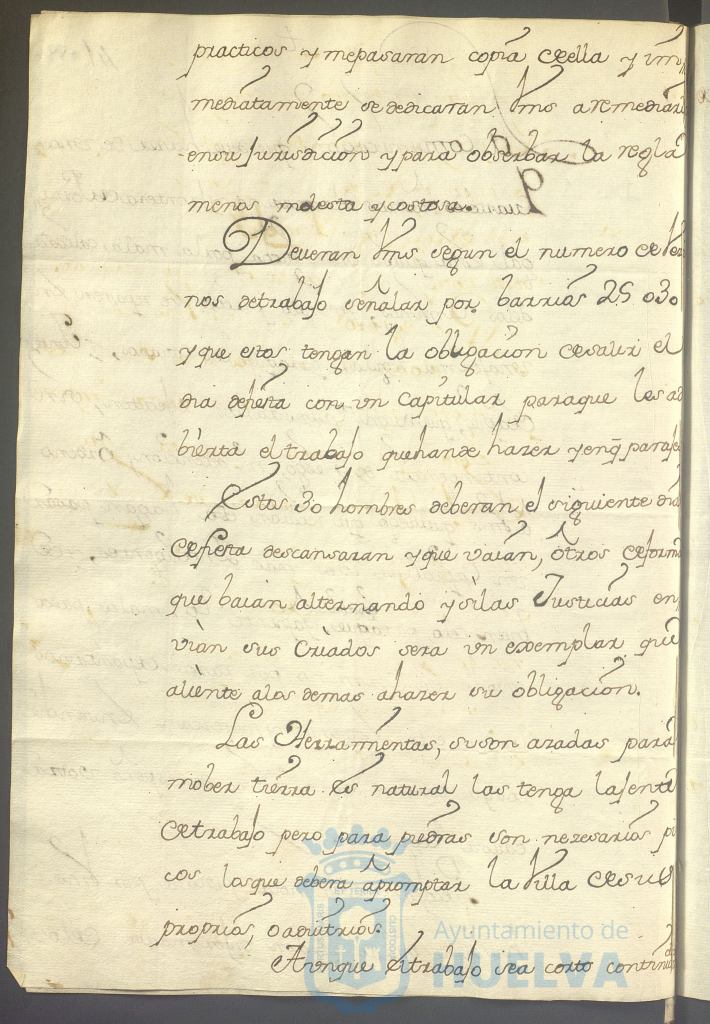 practicos y mepasaran copia deella y im
mediatamente sededicaran Vms a remediar
ensu Jurisdicion y para obserbar la regla
menos molesta y costosa.
Deueran Vms segun el numero de Ve
nos detrabajo señalar por barrios 25 o 30
y que estos tengan la obligacion desalir el
dia defiesta con vn Capitular paraque les ad
bierta el trabajo quehande hazer y enq paraje
Estos 30 hombres deberan el siguiente dia
defiesta descansaran y que vaian, otros deforma
que baian alternando y silas Justicias en
vian sus Criados sera vn exemplar que
aliente alos demas ahazer su obligacion.
Las Herramientas, suson azadas para
mober tierra es natural las tenga lajente
detrabajo pero para piedras son nezesarios pi
cos losque debera apromptar la Villa desus
proprios, o aruitrios.
Aunque eltrabajo sea corto continua
Ayuntamiento de
HUELVA